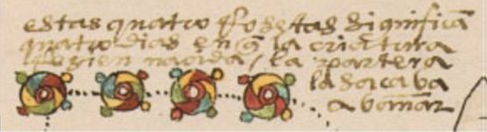 estas quatro Rosetas significã
quatro dias en q̃ la criatura
rezien naçida / la partera
la sacava
a bañar